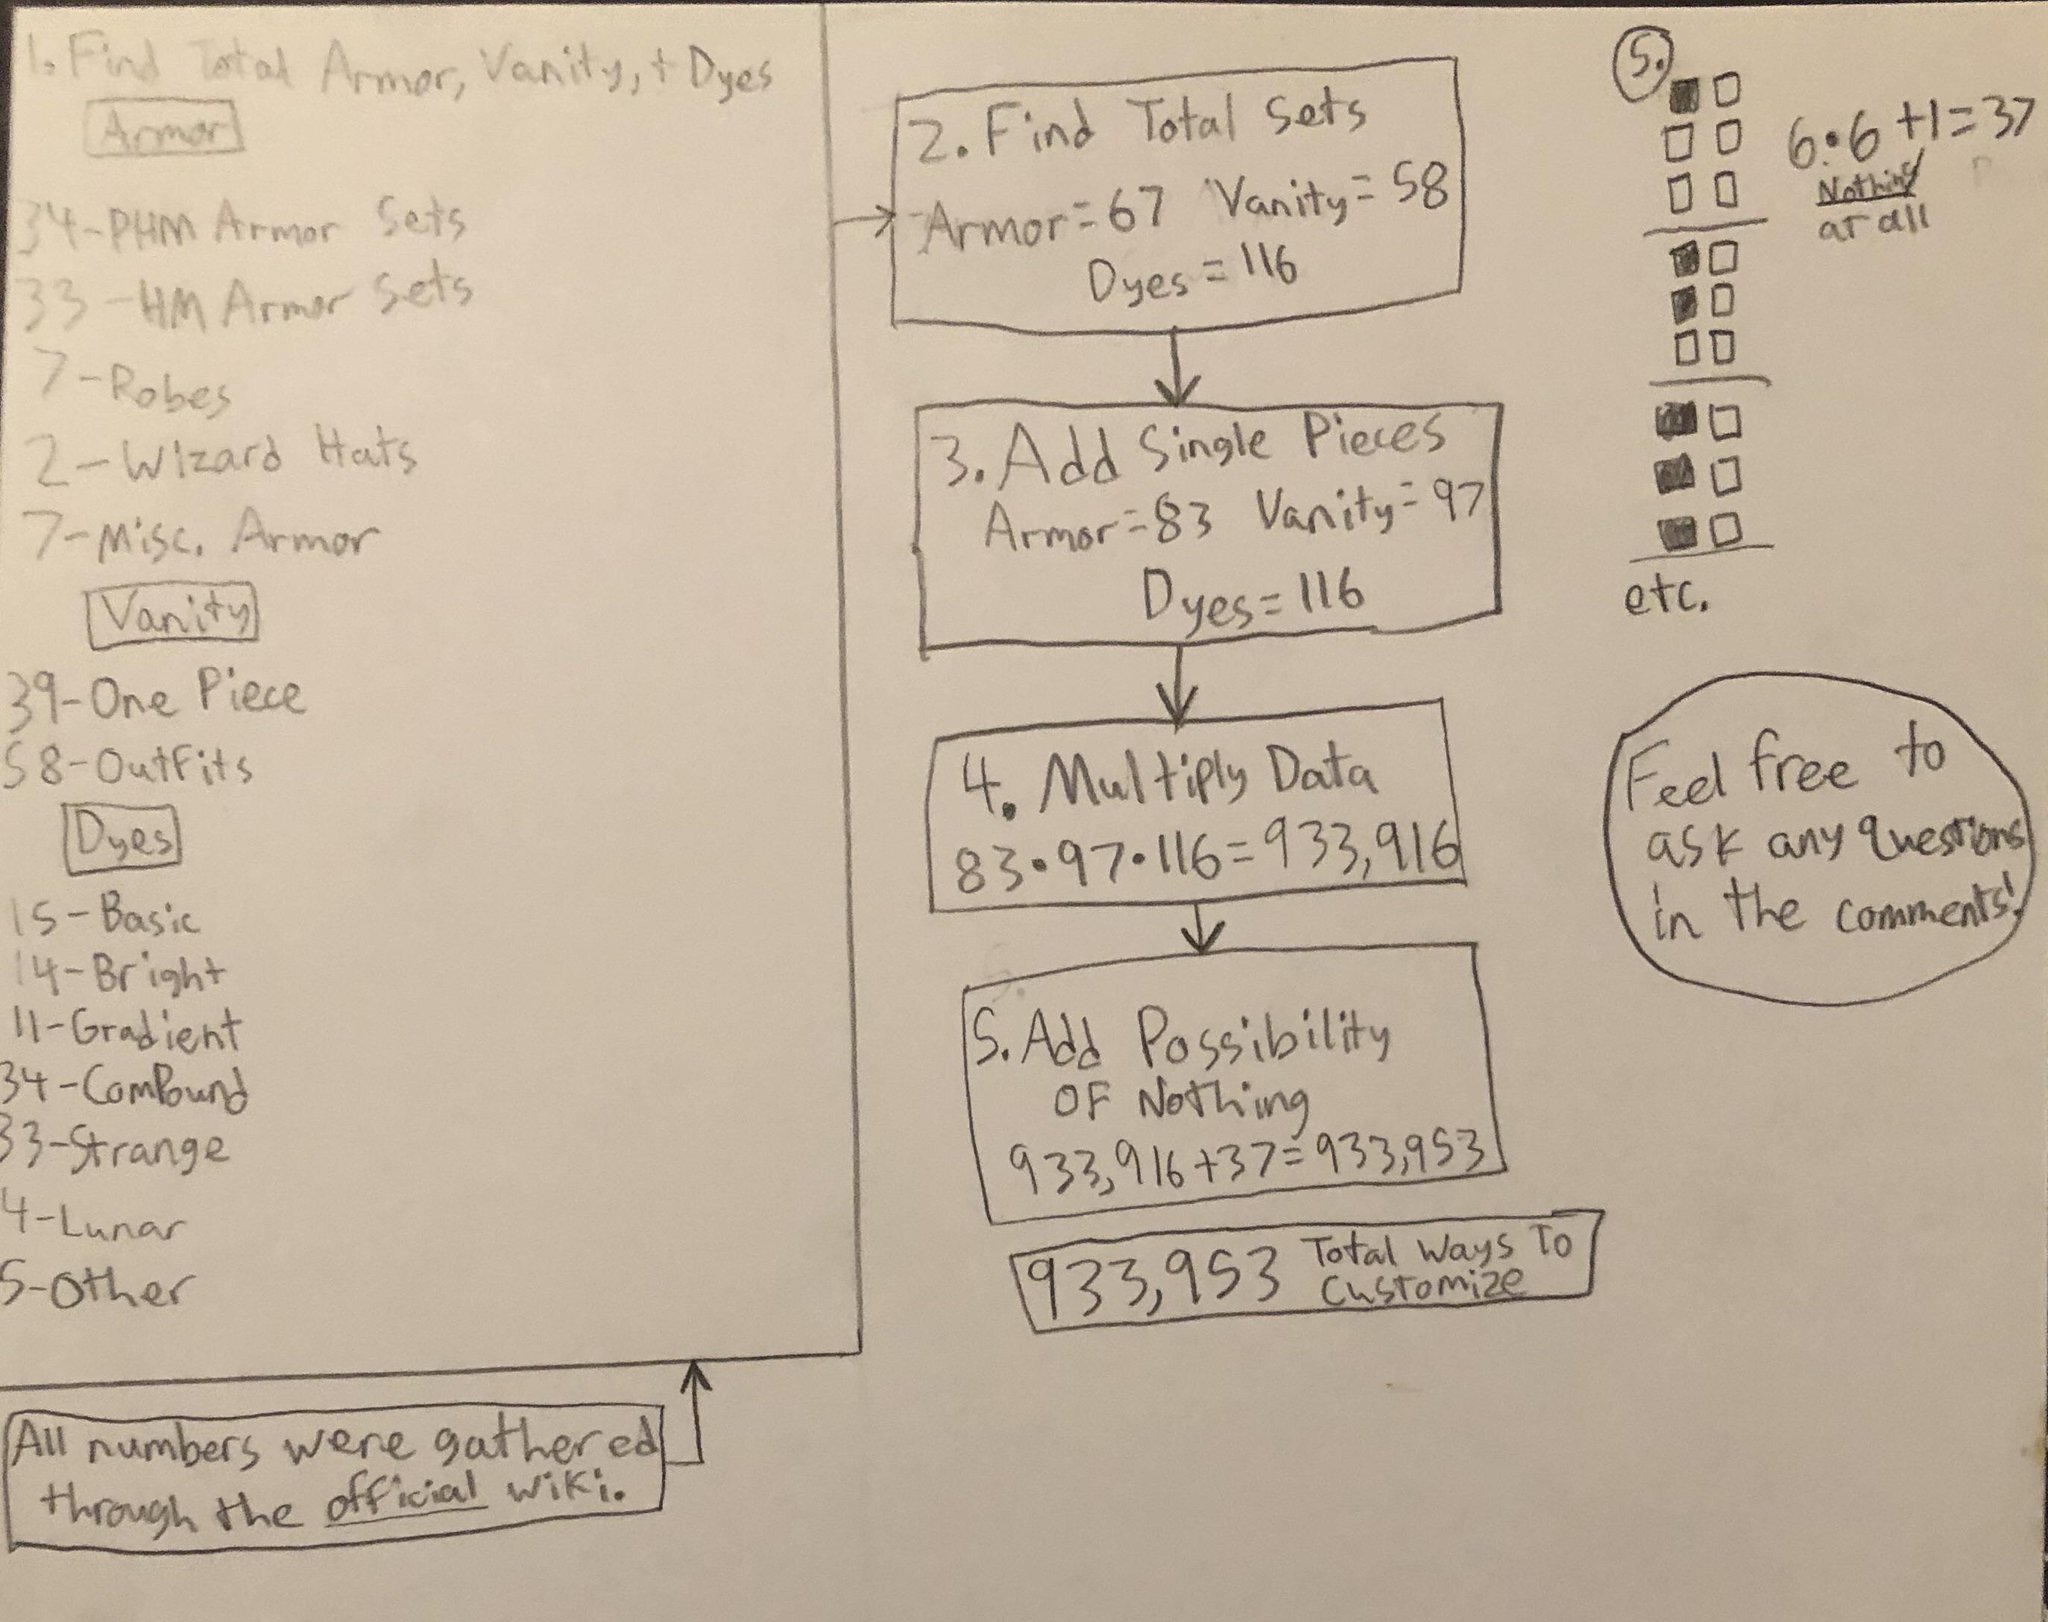 1. Find Total Armor, Vanity, + Dyes
Armor
34-PHM Armor Sets
33-HM Armor Sets
7-Robes
2-Wizard Hats
7-Misc. Armor
Vanity
39-One Piece
58-Outfits
Dyes
15-Basic
14-Bright
11-Gradient
34-Compound
33-Strange
4-Lunar
5-Other
All numbers were gathered
through the official wiki.
2. Find Total Sets
Armor=67 Vanity=58
Dyes=116
3. Add Single Pieces
Armor=83 Vanity=97
Dyes=116
4. Multiply Data
83•97•116=933,916
5. Add Possibility
OF Nothing
933,916+37=933,953
933,953 Total Ways To
Customize
5.
6•6+1=37
Nothing
at all
etc.
Feel free to
ask any questions
in the comments!